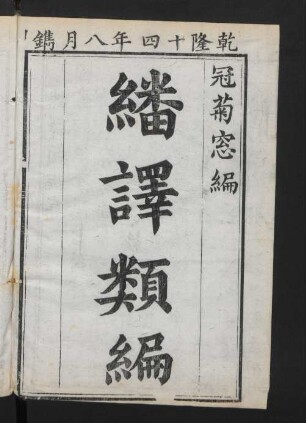 乾隆十四年八月鐫
冠菊窓編
繙譯類編